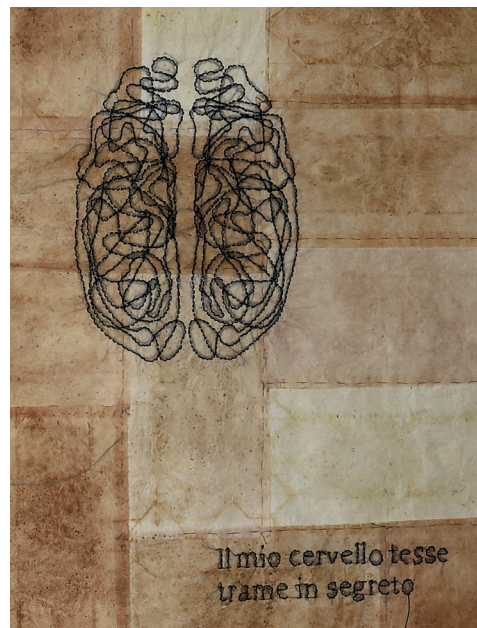 Il mio cervello tesse
trame in segreto